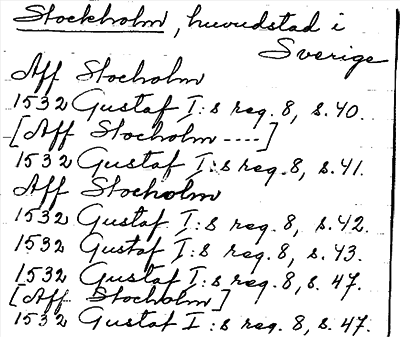 Stockholm, huvudstad i
Sverige
Aff Stocholm
1532 Gustaf I:s reg. 8, s. 40.
[Aff Stocholm ----]
1532 Gustaf I:s reg. 8, s. 41.
Aff Stocholm
1532 Gustaf I:s reg. 8, s. 42.
1532 Gustaf I:s reg. 8, s. 43.
1532 Gustaf I:s reg. 8, s. 47.
[Aff Stocholm]
1532 Gustaf I:s reg. 8, s. 47.